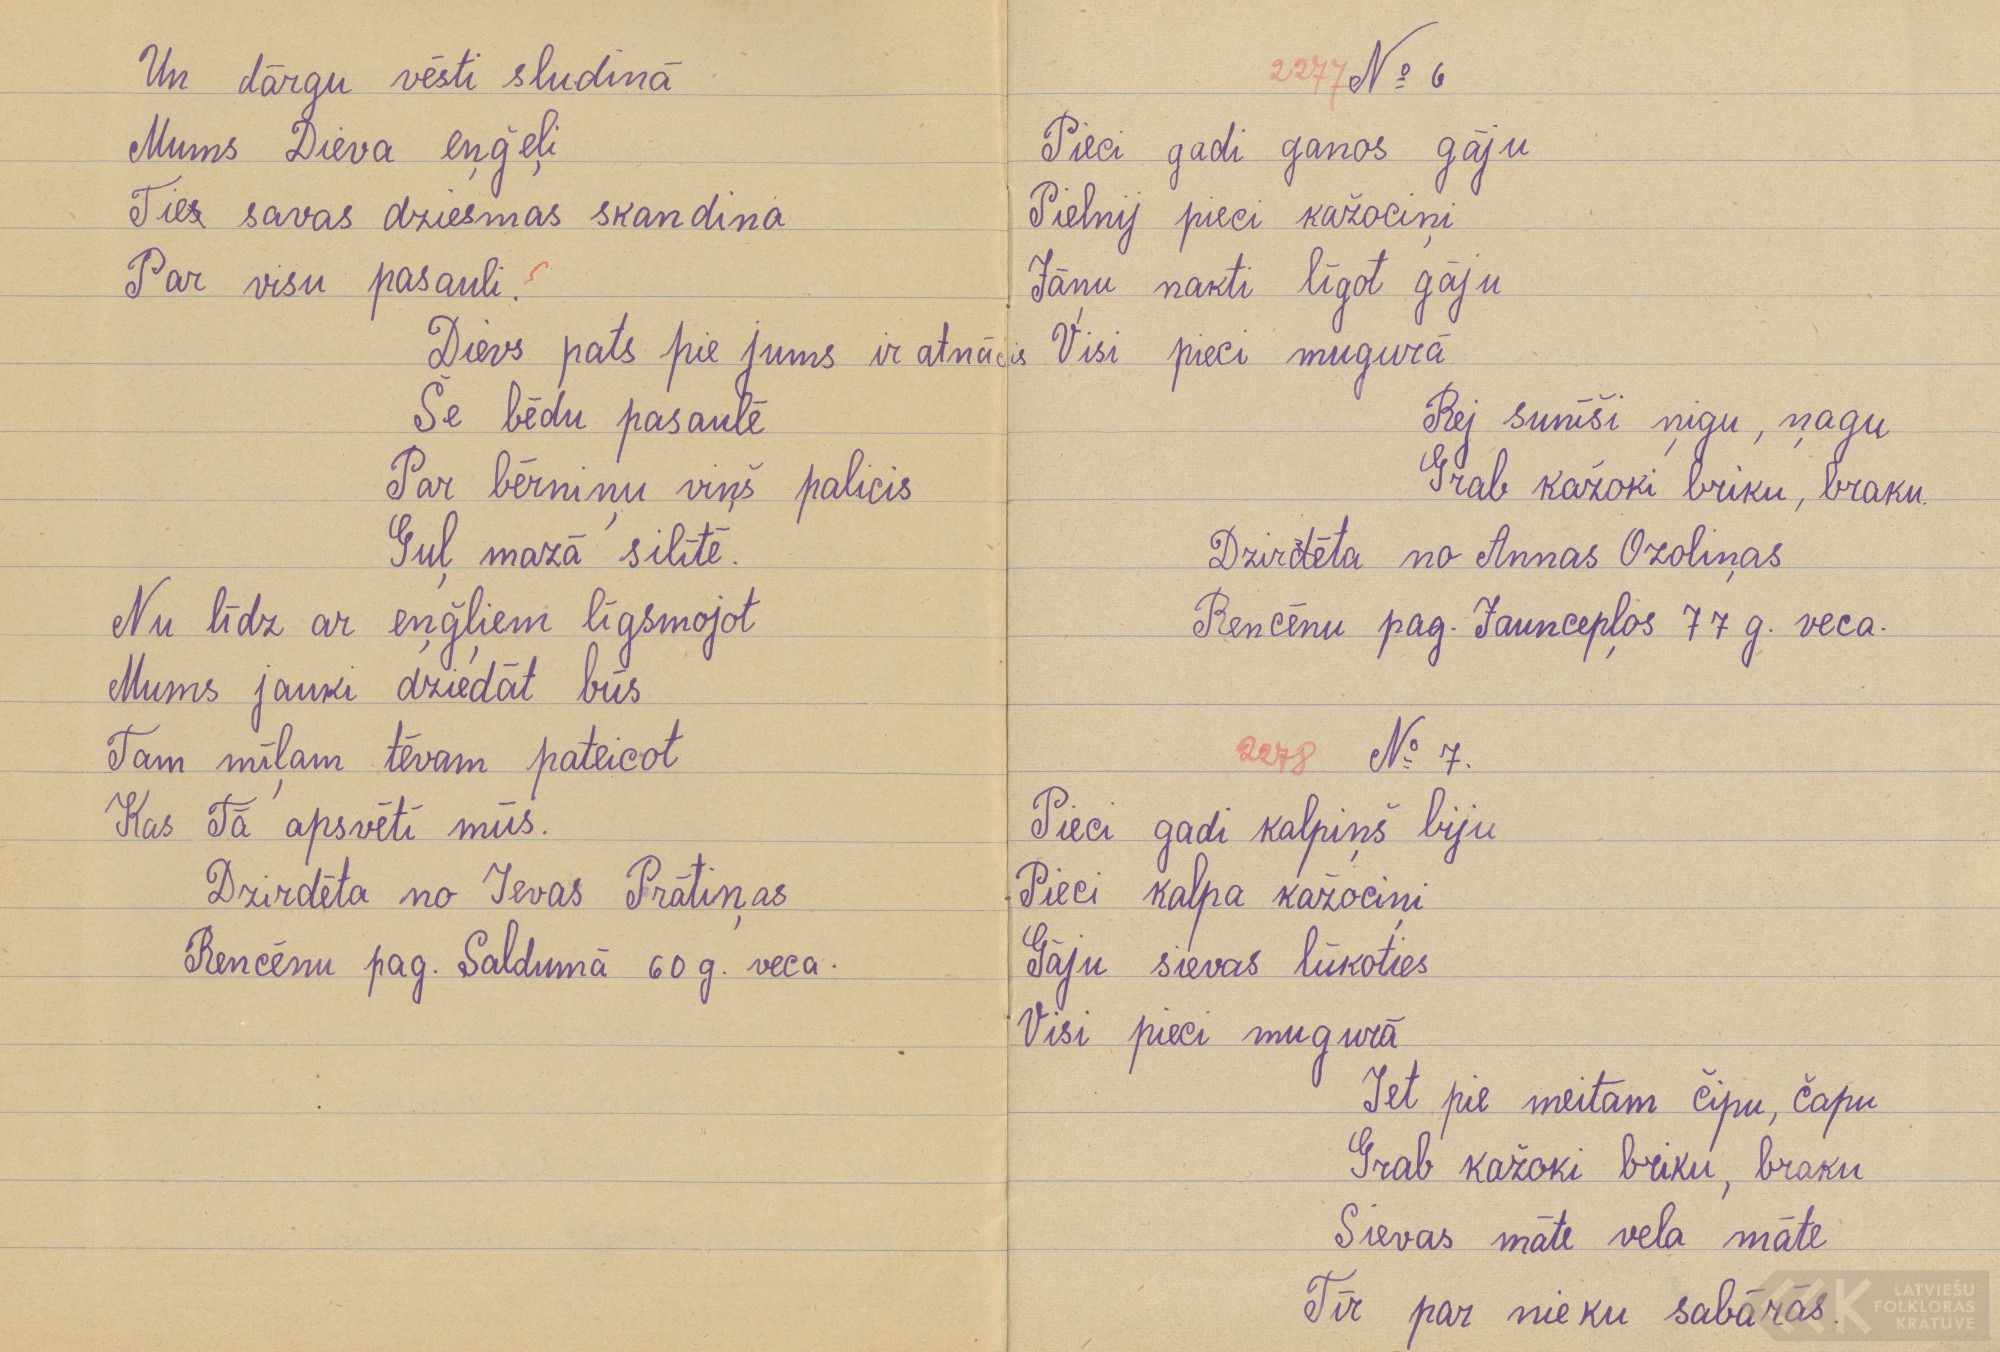 Un dārgu vēsti sludinā
Mums Dieva eņģeļi
Ties savas dziesmas skandina
Par visu pasauli.
Dievs pats pie jums ir atnācis
Še bēdu pasaulē
Par bērniņu viņš palicis
Guļ mazā silītē.
Nu līdz ar eņģļiem līgsmojot
Mums jauki dziedāt būs
Tam mīļam tēvam pateicot
Kas Tā apsvētī mūs.
Dzirdēta no Ievas Prātiņas
Rencēnu pag. Saldumā 60 g. veca.
2277 № 6
Pieci gadi ganos gāju
Pielnij pieci kažociņi
Jāņu nakti līgot gāju
Visi pieci mugurā
Rej sunīši ņigu, ņagu
Grab kažoki briku, braku.
Dzirdēta no Annas Ozoliņas
Rencēnu pag. Jauncepļos 77 g. veca.
2278 № 7.
Pieci gadi kalpiņš biju
Pieci kalpa kažociņi
Gāju sievas lūkoties
Visi pieci mugurā
Iet pie meitam čipu, čapu
Grab kažoki briku, braku
Sievas māte vela māte
Tīr par nieku sabārās.
LATVIEŠU
FOLKLORAS
KRĀTUVE